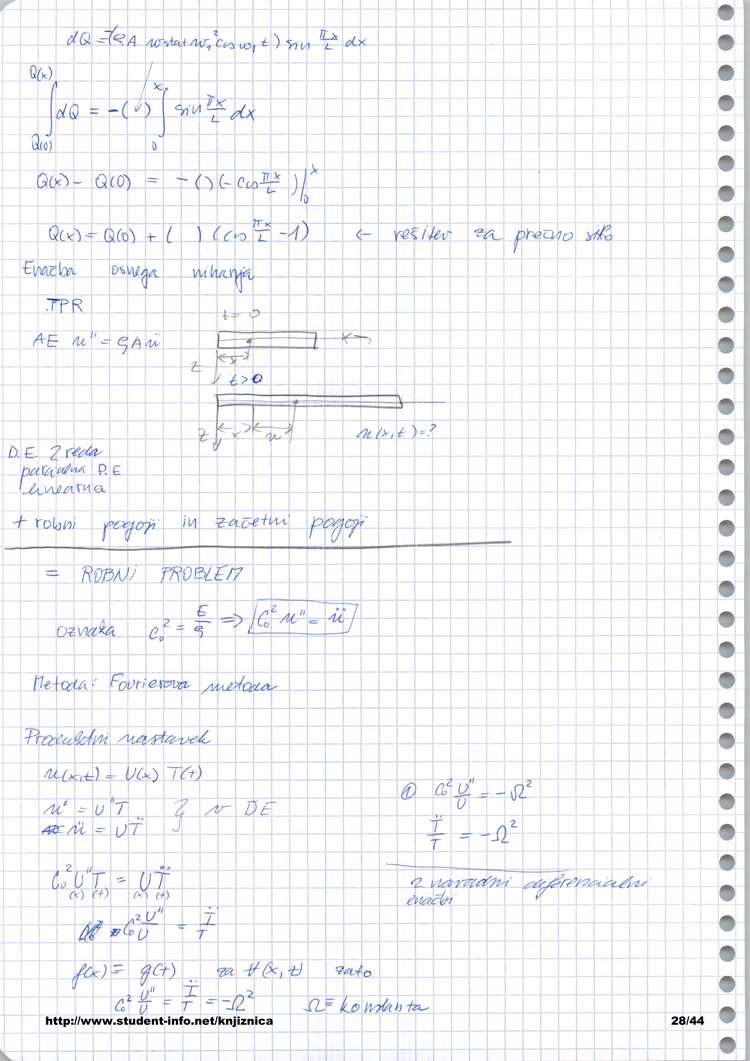 dQ = -(ρA wstat ω₁² cos ω₁ t) sin πx/L dx
Q(x) x
∫ dQ = -( ) ∫ sin πx/L dx
Q(0) 0
Q(x) - Q(0) = -( ) (-cos πx/L )|₀ˣ
Q(x) = Q(0) + ( ) (cos πx/L - 1) ← rešitev za prečno silo
Enačba osnega nihanja
TPR
t = 0
AE u'' = ρAü
x
x
z
t > 0
z x u
u(x,t) = ?
D.E. 2 reda
parcialna D.E
linearna
+ robni pogoji in začetni pogoji
= ROBNI PROBLEM
oznaka C₀² = E/ρ ⇒ C₀² u'' = ü
Metoda: Fourierova metoda
Produktni nastavek
u(x,t) = U(x) T(t)
u'' = U''T } v DE
ü = UT̈
C₀² U''T = UT̈
(x) (t) (x) (t)
C₀² U''/U = T̈/T
f(x) = g(t) za ∀(x,t) zato
C₀² U''/U = T̈/T = -Ω² Ω = konstanta
① C₀² U''/U = -Ω²
T̈/T = -Ω²
2 navadni diferencialni
enačbi
http://www.student-info.net/knjiznica 28/44